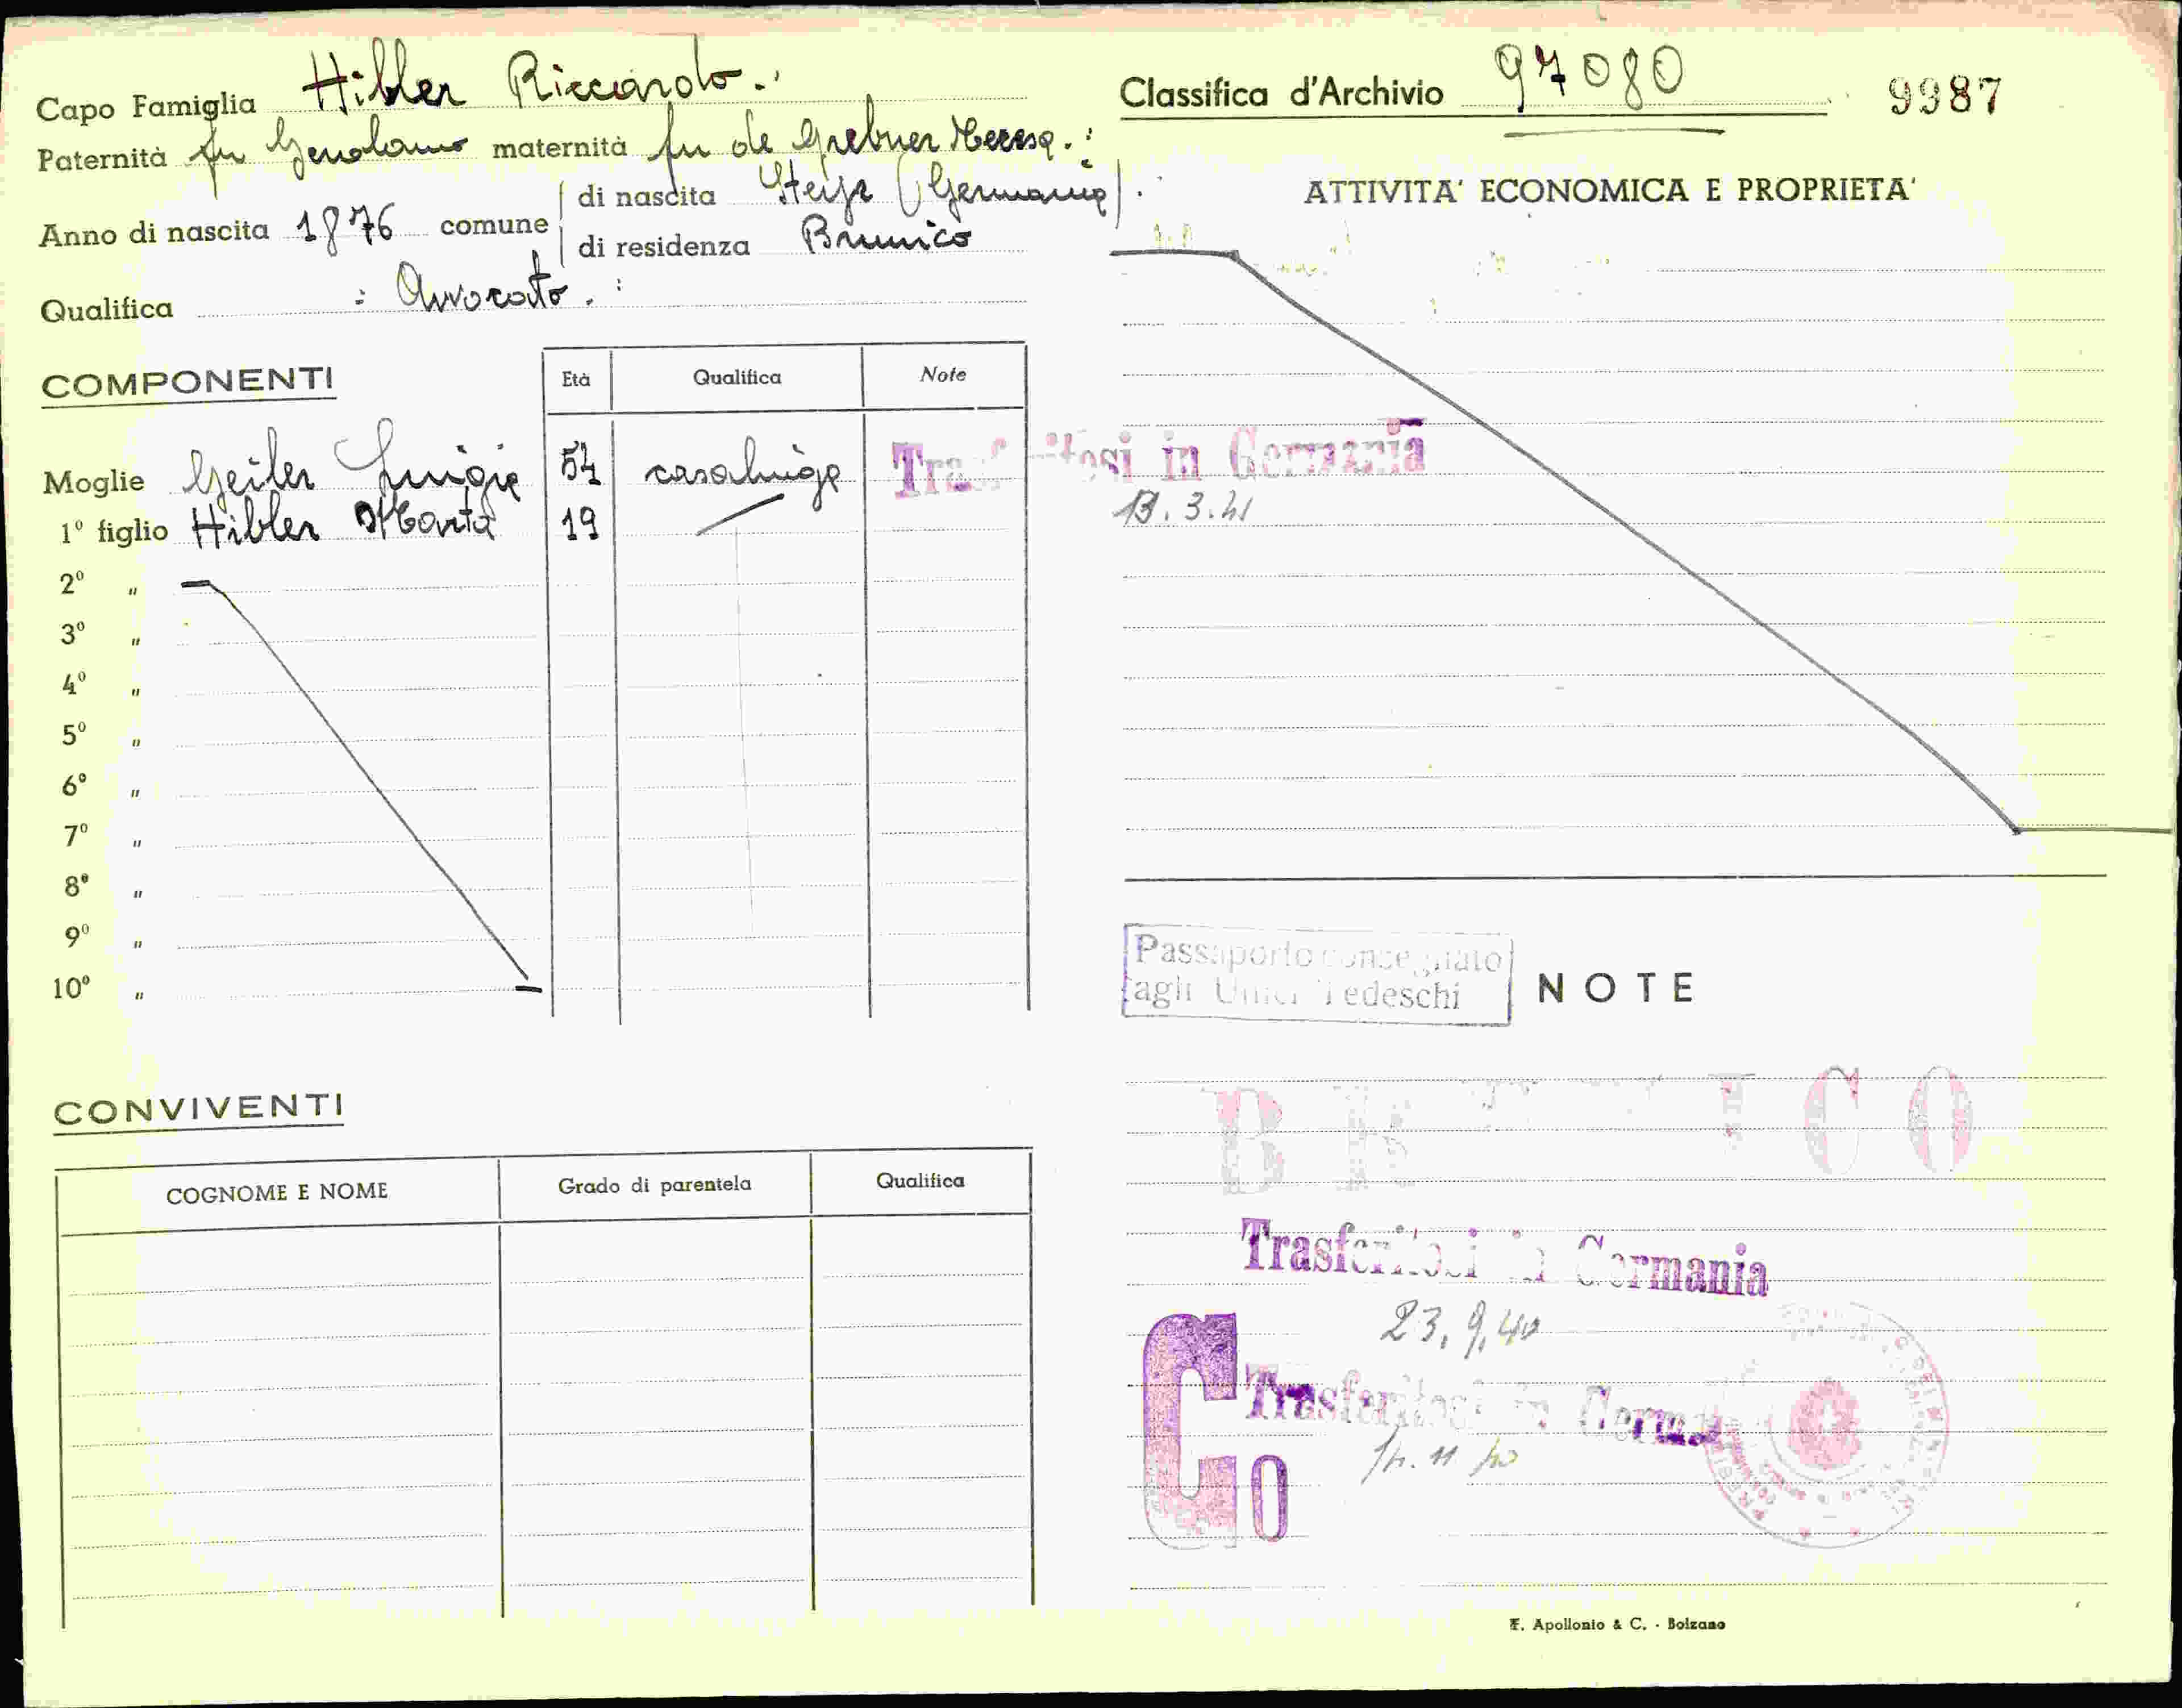 Capo Famiglia Hibler Riccardo.
Paternità fu Gerolamo maternità fu de Grebner Teresa.
Anno di nascita 1876 comune
di nascita Steyr (Germania)
di residenza Brunico
Qualifica : Avvocato. :
COMPONENTI
Età Qualifica Note
Moglie Geiler Luigia 54 casalinga Trasferitosi in Germania
1° figlio Hibler Marta 19
13.3.41
2° "
3° "
4° "
5° "
6° "
7° "
8° "
9° "
10° "
CONVIVENTI
COGNOME E NOME Grado di parentela Qualifica
Classifica d'Archivio 97080 9987
ATTIVITA' ECONOMICA E PROPRIETA'
Passaporto consegnato
agli Uffici Tedeschi
NOTE
Trasferitosi in Germania
23.9.40
C
Trasferitosi in Germania
0
F. Apollonio & C. - Bolzano